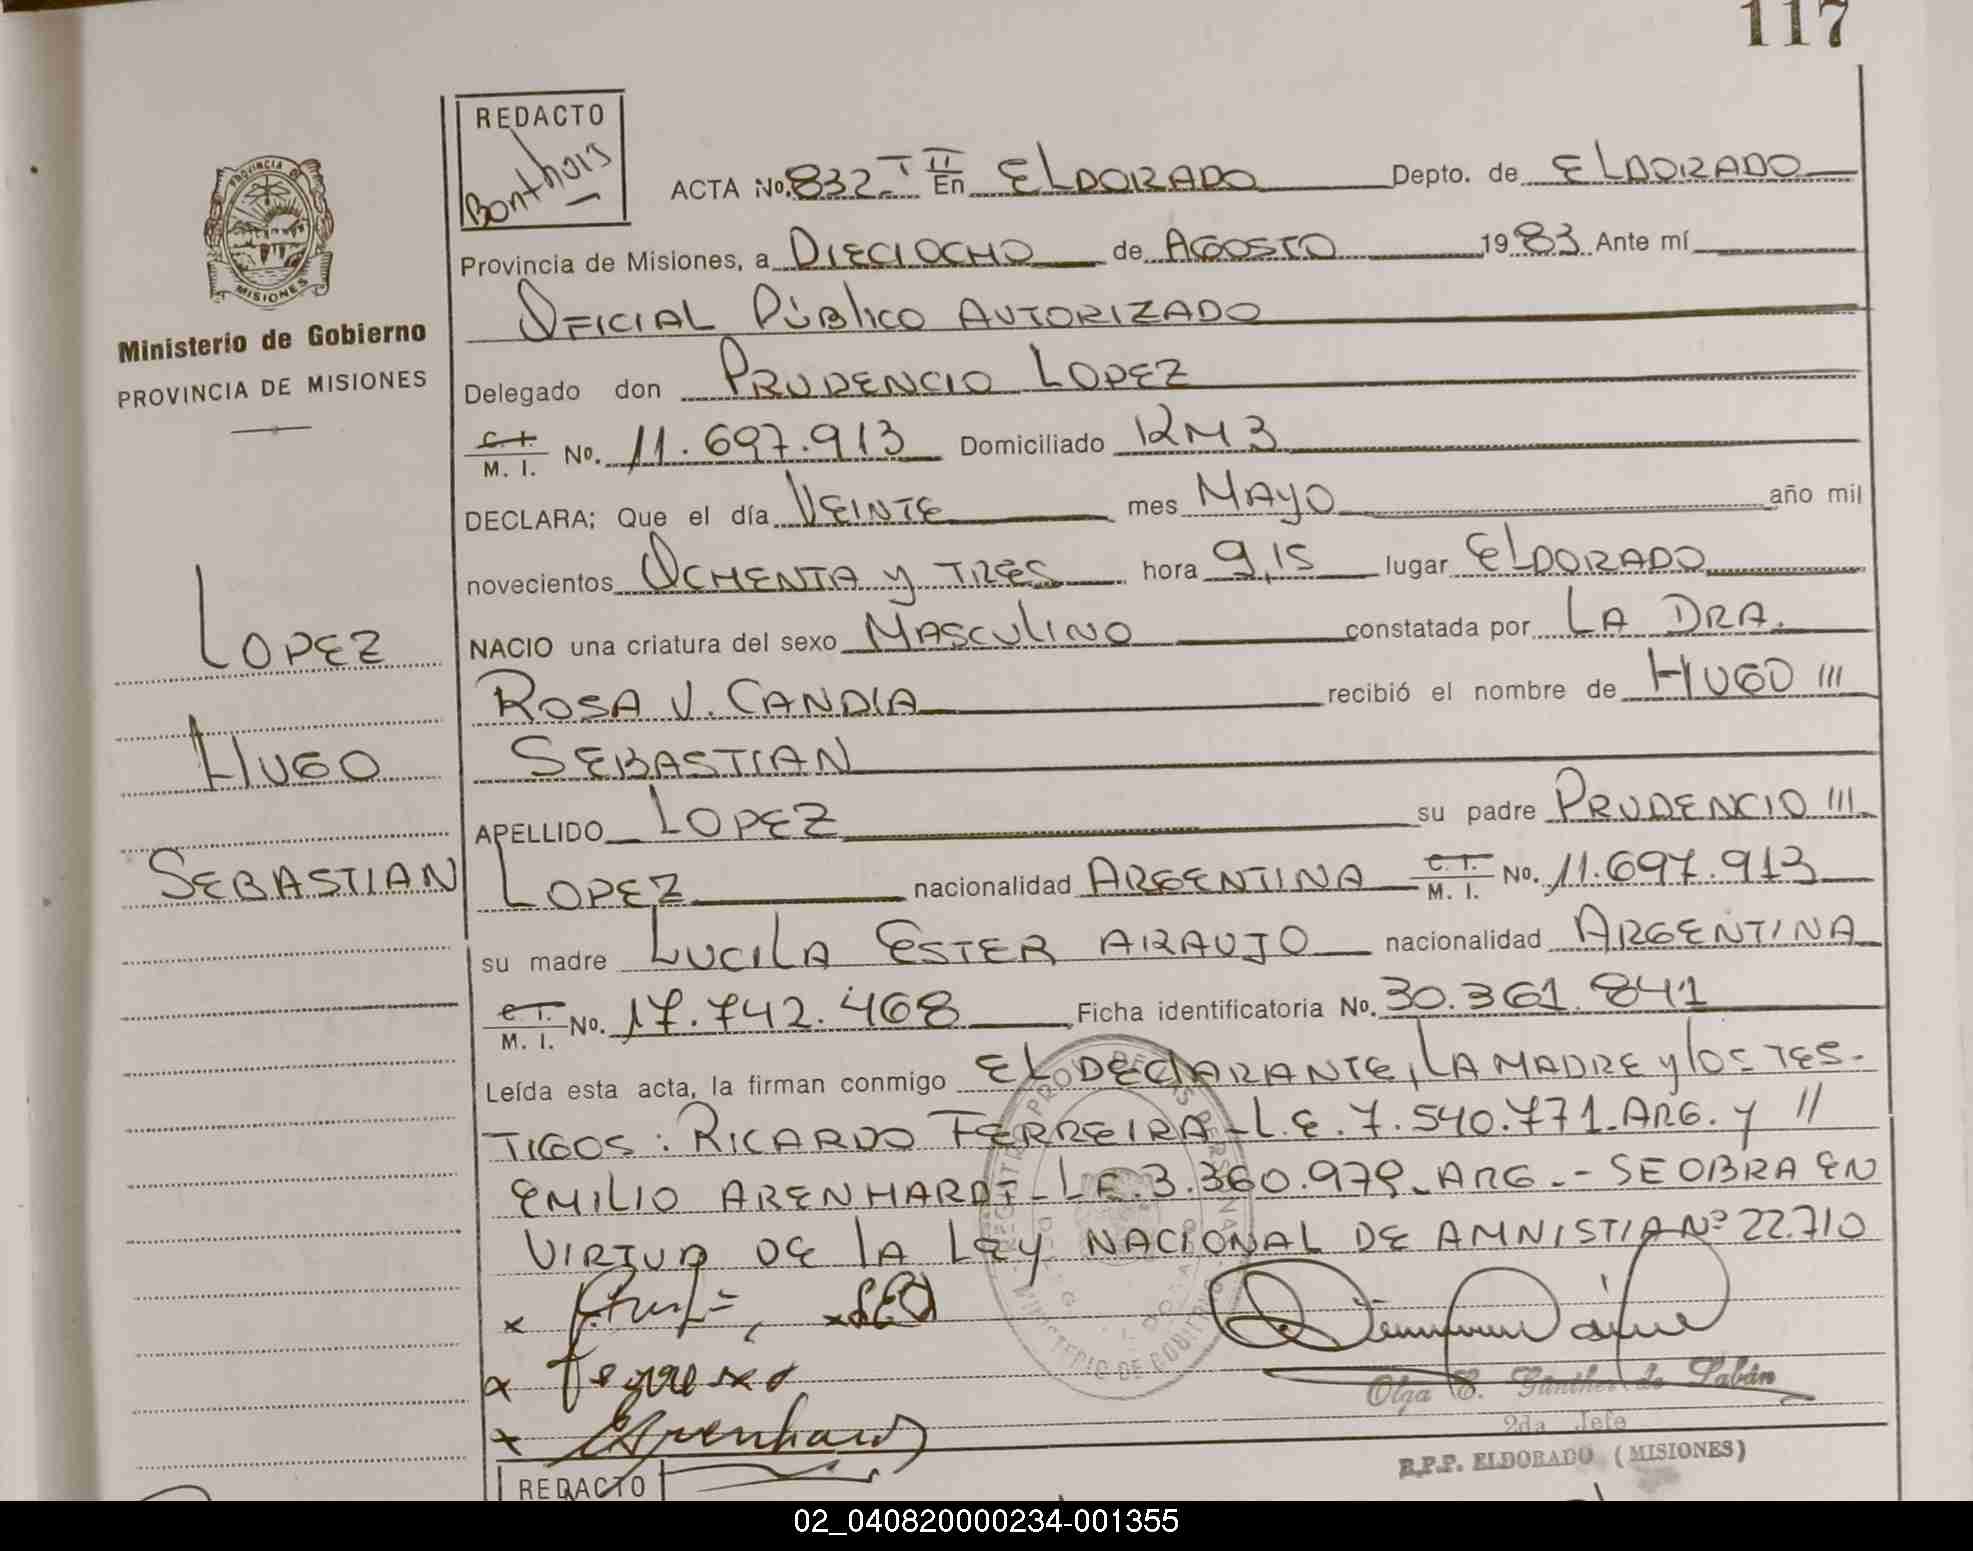 117
REDACTO
Bonthuis
ACTA No. 832 T II En ELDORADO Depto. de ELDORADO
Provincia de Misiones, a DIECIOCHO de AGOSTO 1983 Ante mí
OFICIAL PÚBLICO AUTORIZADO
Delegado don PRUDENCIO LOPEZ
C. I. M. I. No. 11.697.913 Domiciliado KM 3
DECLARA; Que el día VEINTE mes MAYO año mil
novecientos OCHENTA y TRES hora 9,15 lugar ELDORADO
NACIO una criatura del sexo MASCULINO constatada por LA DRA.
ROSA V. CANDIA recibió el nombre de HUGO ///
SEBASTIAN
APELLIDO LOPEZ su padre PRUDENCIO ///
LOPEZ nacionalidad ARGENTINA C. I. M. I. No. 11.697.913
su madre LUCILA ESTER ARAUJO nacionalidad ARGENTINA
C. I. M. I. No. 17.742.468 Ficha identificatoria No. 30.361.841
Leída esta acta, la firman conmigo EL DECLARANTE, LA MADRE y LOS TES-
TIGOS: RICARDO FERREIRA-L.E. 7.540.771-ARG. y //
EMILIO ARENHARDT-L.E. 3.360.979-ARG.- SE OBRA EN
VIRTUD DE LA LEY NACIONAL DE AMNISTIA Nº 22.710
Olga E. Günther de Labán
2da Jefe
R.P.P. ELDORADO (MISIONES)
REDACTO
PROVINCIA DE
MISIONES
Ministerio de Gobierno
PROVINCIA DE MISIONES
LOPEZ
HUGO
SEBASTIAN
MINISTERIO DE GOBIERNO
02_040820000234-001355